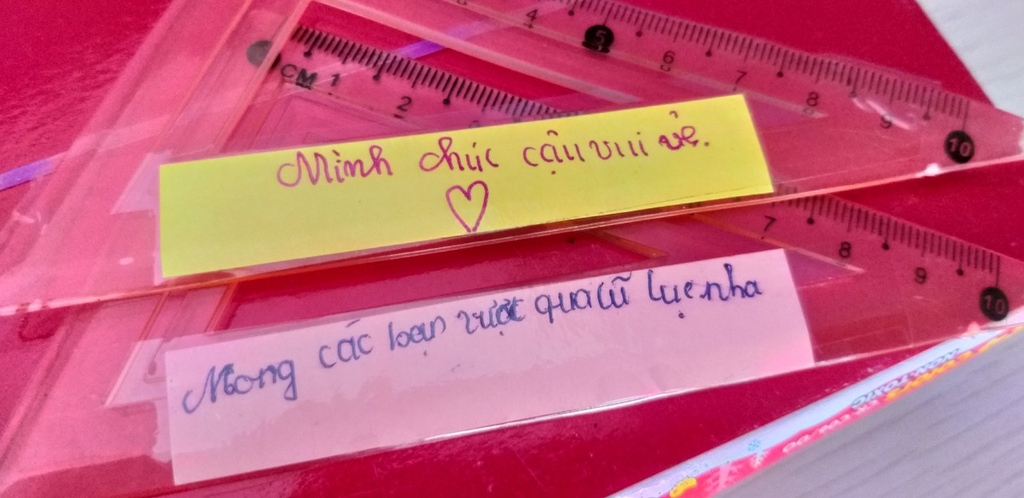 4 5 6 7 8 9 10
CM 1 2
Mình chúc cậu vui vẻ.
7 8 9 10
Mong các bạn vượt qua lũ lụt nha